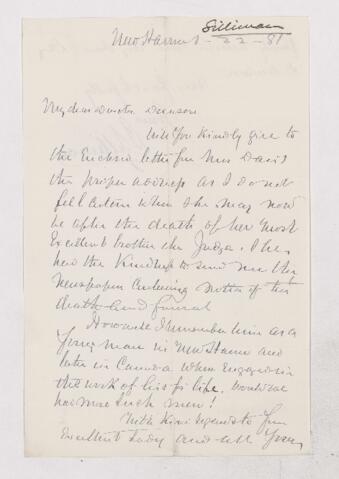 Silliman
New Haven - 22 - 81
My dear Doctor
Will you kindly give to
the Enclosed letter for Mrs Davis
the proper address as I do not
where she may now
be after the death of her most
Excellent brother the Judge. She
had the kindness to send me the
Newspaper notice of his
death and funeral
I remember him as a
young man in New Haven and
later in Canada when engaged in
the work of his life. Would we
had more such men!
With kind regards to your
Excellent Lady and all yours